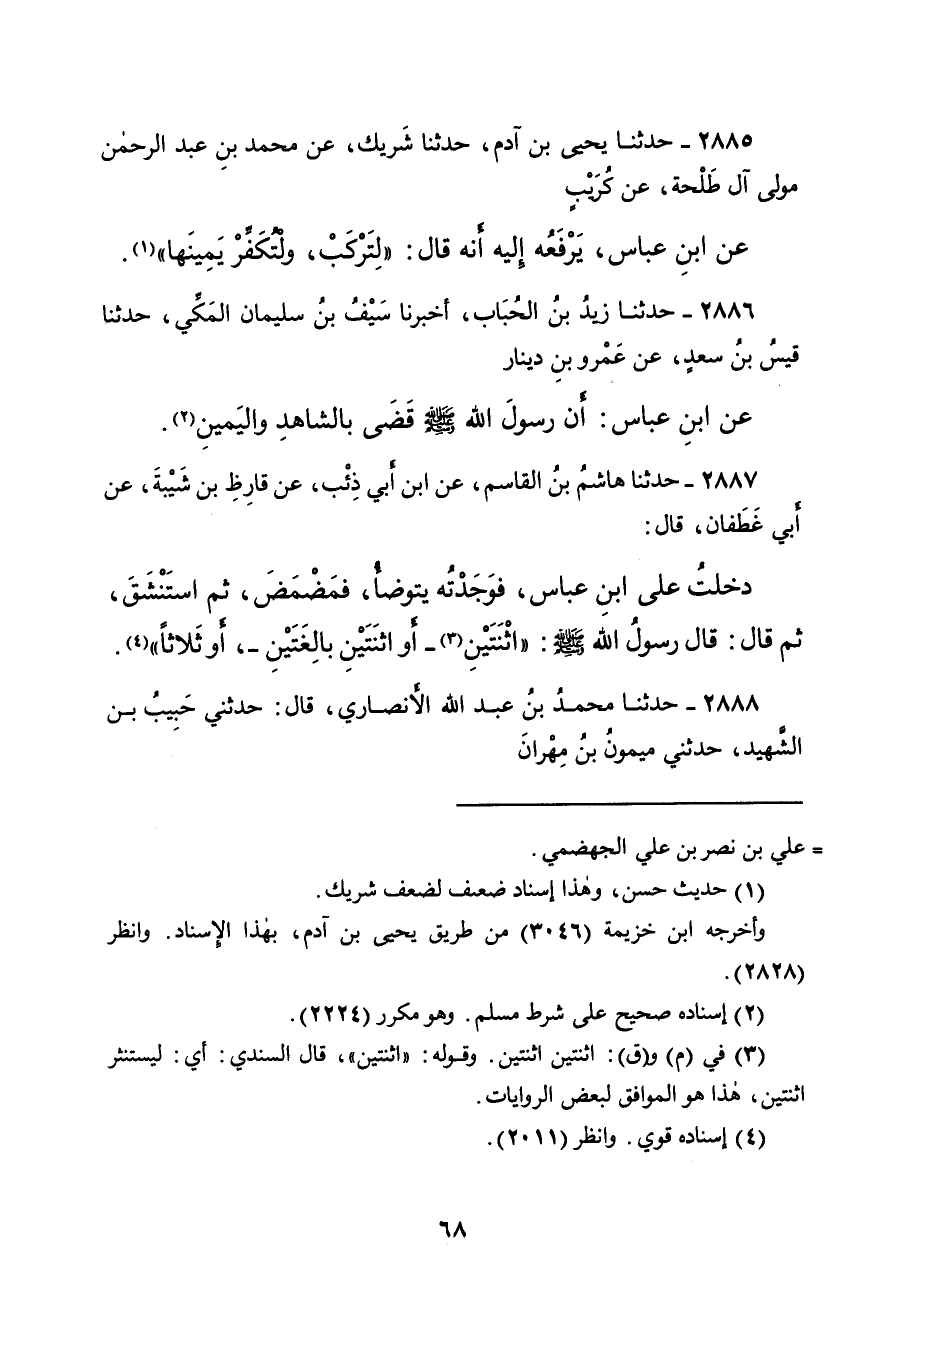 ٢٨٨٥ ـ حدثنا يحيى بن آدم، حدثنا شَريك، عن محمد بنِ عبد الرحمٰن
مولى آل طَلْحة، عن كُرَيْبٍ
عن ابنِ عباس، يَرْفَعُه إليه أَنه قال: «لِتَرْكَبْ، ولْتُكَفِّرْ يَمِينَها»(١).
٢٨٨٦ ـ حدثنا زيدُ بنُ الحُبَاب، أخبرنا سَيْفُ بنُ سليمان المَكِّي، حدثنا
قيسُ بنُ سعدٍ، عن عَمْرو بنِ دينار
عن ابنِ عباس: أَن رسولَ الله ﷺ قَضَى بالشاهدِ واليَمينِ(٢).
٢٨٨٧ ـ حدثنا هاشمُ بنُ القاسم، عن ابن أَبي ذِئْب، عن قارِظِ بن شَيْبةَ، عن
أَبي غَطَفان، قال:
دخلتُ على ابنِ عباس، فوَجَدْتُه يتوضأُ، فمَضْمَضَ، ثم استَنْشَقَ،
ثم قال: قال رسولُ الله ﷺ: «اثْنَتَيْنِ(٣) ـ أَو اثنَتَيْنِ بالِغَتَيْنِ ـ، أَو ثَلاثاً»(٤).
٢٨٨٨ ـ حدثنا محمدُ بنُ عبد الله الأَنصاري، قال: حدثني حَبِيبُ بن
الشَّهيد، حدثني ميمونُ بنُ مِهْرانَ
= علي بن نصر بن علي الجهضمي.
(١) حديث حسن، وهٰذا إسناد ضعيف لضعف شريك.
وأخرجه ابن خزيمة (٣٠٤٦) من طريق يحيى بن آدم، بهٰذا الإسناد. وانظر
(٢٨٢٨).
(٢) إسناده صحيح على شرط مسلم. وهو مكرر (٢٢٢٤).
(٣) في (م) و(ق): اثنتين اثنتين. وقوله: «اثنتين»، قال السندي: أي: ليستنثر
اثنتين، هٰذا هو الموافق لبعض الروايات.
(٤) إسناده قوي. وانظر (٢٠١١).
٦٨